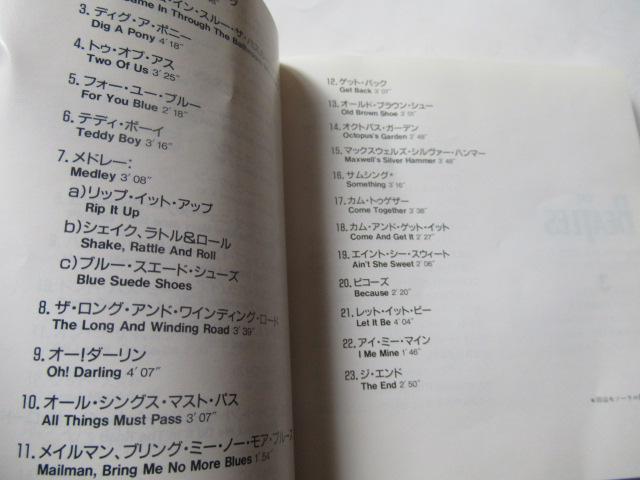 ム・イン・スルー・ザ・バス
Came In Through The Bathroom
3. ディグ・ア・ポニー
Dig A Pony 4′18″
4. トゥ・オブ・アス
Two Of Us 3′25″
5. フォー・ユー・ブルー
For You Blue 2′18″
6. テディ・ボーイ
Teddy Boy 3′16″
7. メドレー:
Medley 3′08″
a)リップ・イット・アップ
Rip It Up
b)シェイク、ラトル&ロール
Shake, Rattle And Roll
c)ブルー・スエード・シューズ
Blue Suede Shoes
8. ザ・ロング・アンド・ワインディング・ロード
The Long And Winding Road 3′39″
9. オー!ダーリン
Oh! Darling 4′07″
10. オール・シングス・マスト・パス
All Things Must Pass 3′07″
11. メイルマン、ブリング・ミー・ノー・モア・ブルース
Mailman, Bring Me No More Blues 1′54″
12. ゲット・バック
Get Back 3′07″
13. オールド・ブラウン・シュー
Old Brown Shoe 3′01″
14. オクトパス・ガーデン
Octopus's Garden 2′48″
15. マックスウェルズ・シルヴァー・ハンマー
Maxwell's Silver Hammer 3′48″
16. サムシング*
Something 3′16″
17. カム・トゥゲザー
Come Together 3′38″
18. カム・アンド・ゲット・イット
Come And Get It 2′27″
19. エイント・シー・スウィート
Ain't She Sweet 2′06″
20. ビコーズ
Because 2′20″
21. レット・イット・ビー
Let It Be 4′04″
22. アイ・ミー・マイン
I Me Mine 1′46″
23. ジ・エンド
The End 2′50″